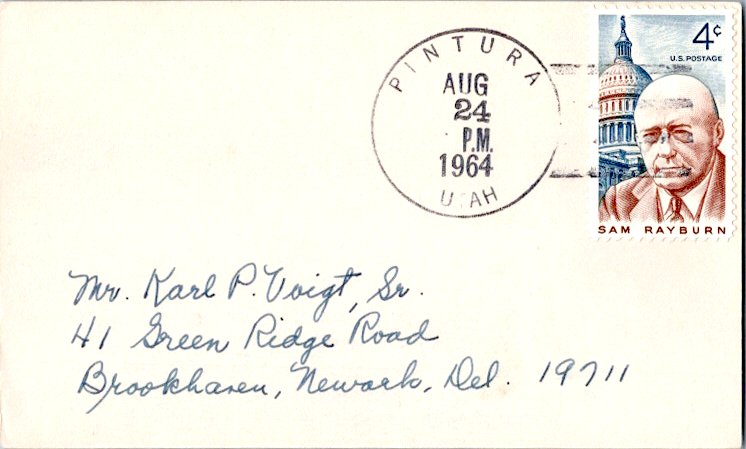 PINTURA
AUG
24
P.M.
1964
UTAH
4¢
U.S. POSTAGE
SAM RAYBURN
Mr. Karl P. Voigt, Sr.
41 Green Ridge Road
Brookhaven, Newark, Del. 19711